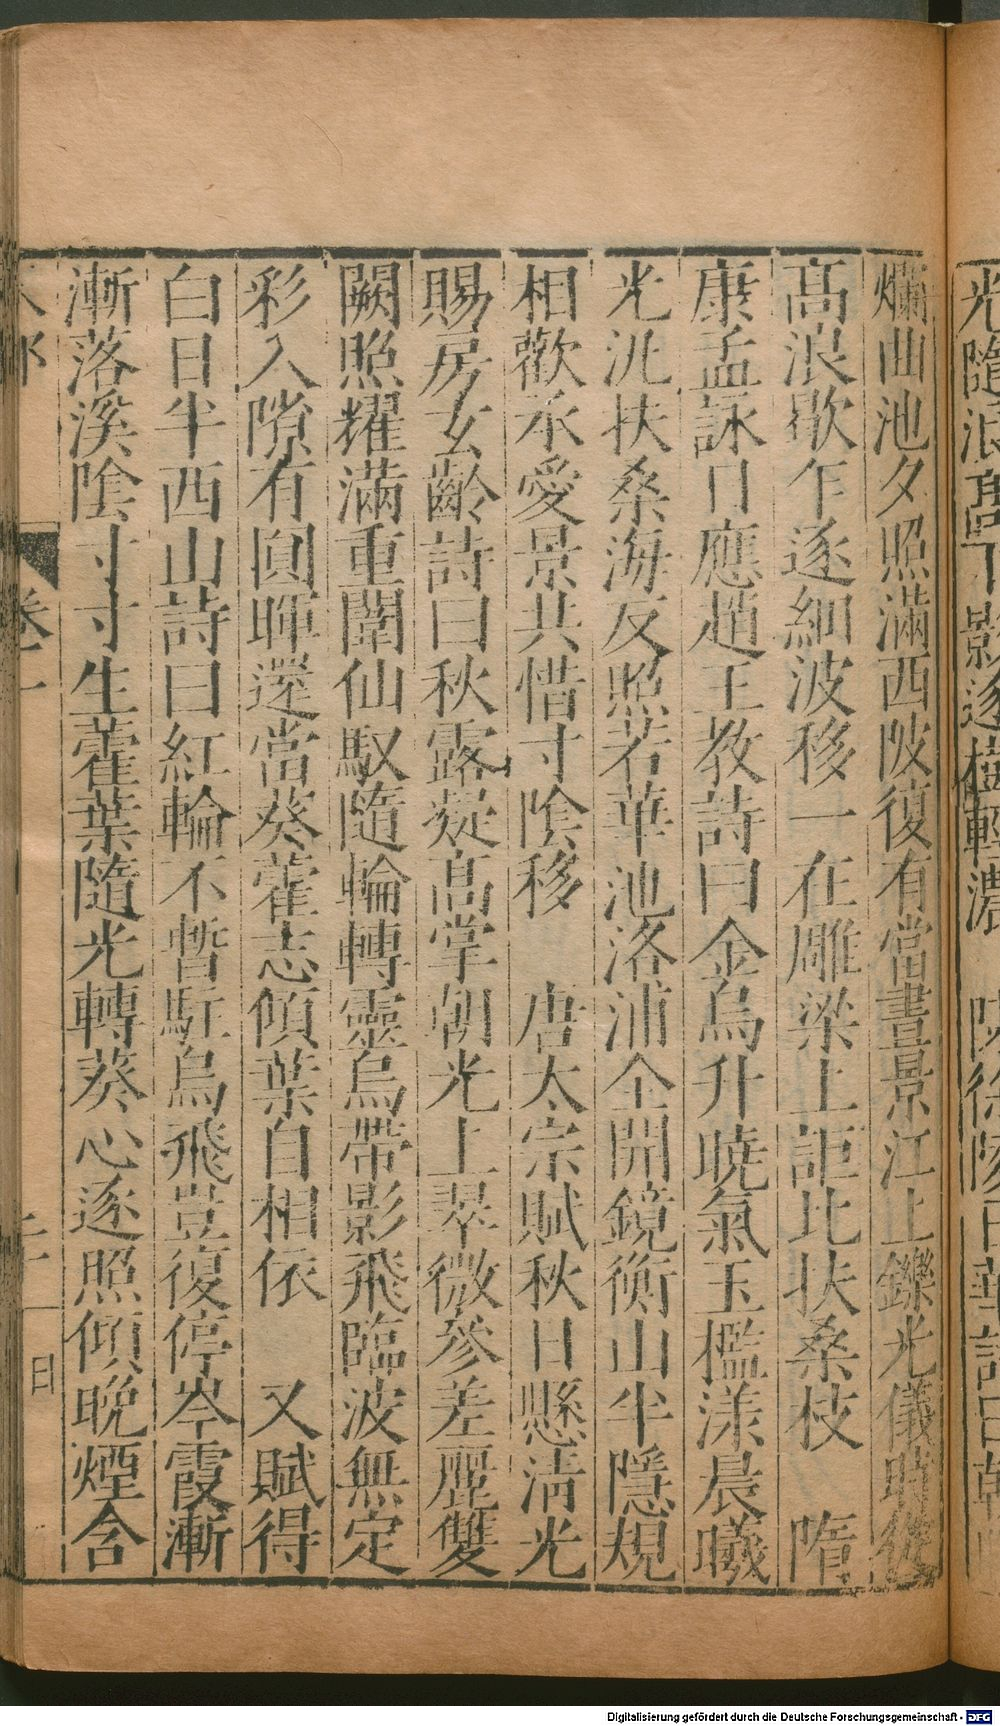 光隨浪高下影逐樹輕濃　陳徐陵日華詩曰朝
爛曲池夕照滿西陂復有當晝景江上鑠光儀時從
高浪歇乍逐細波移一在雕梁上詎比扶桑枝　隋
康孟詠日應趙王教詩曰金烏升曉氣玉檻漾晨曦
光汎扶桑海反照若華池洛浦全開鏡衡山半隱規
相歡承愛景共惜寸陰移　唐太宗賦秋日懸清光
賜房玄齡詩曰秋露凝高掌朝光上翠微參差麗雙
闕照耀滿重闈仙馭隨輪轉靈烏帶影飛臨波無定
彩入隙有圓暉還當葵藿志傾葉自相依　又賦得
白日半西山詩曰紅輪不暫駐烏飛豈復停岑霞漸
漸落溪陰寸寸生藿葉隨光轉葵心逐照傾晚煙含
卷一　日
Digitalisierung gefördert durch die Deutsche Forschungsgemeinschaft - DFG